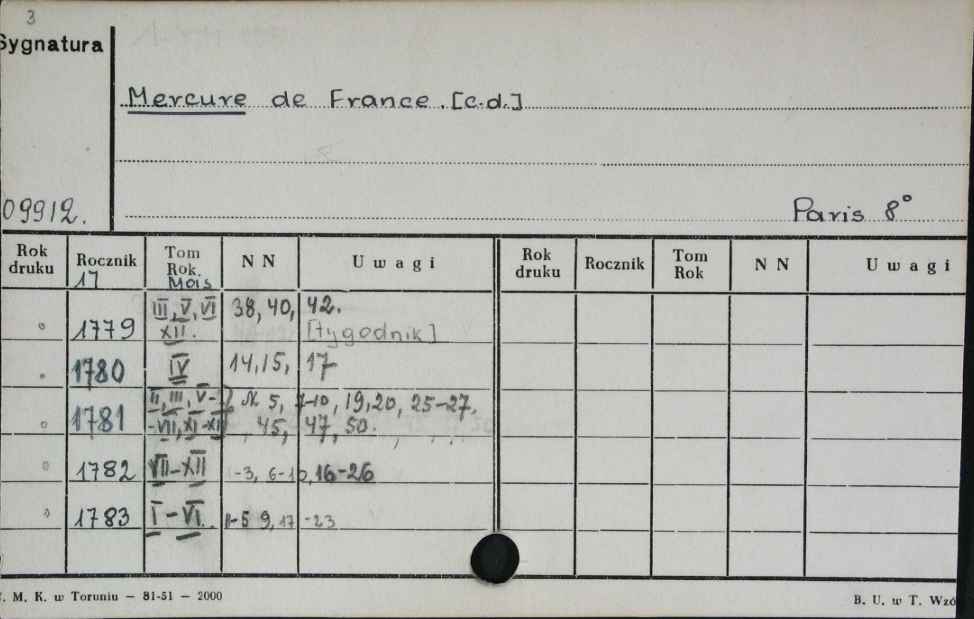 3
Sygnatura
Mercure de France. [c.d.]
09912.
Paris 8°
Rok druku Rocznik 17 Tom Rok. Mois N N U w a g i Rok druku Rocznik Tom Rok N N U w a g i
1779 III, V, VI XII. 38, 40, 42. [tygodnik]
1780 IV 14, 15, 17
1781 II, III, V- -VII, XI-XII N. 5, 7-10, 19, 20, 25-27, 45, 47, 50.
1782 VII-XII 1-3, 6-10, 16-26
1783 I-VI. 1-5 9, 17 -23
. M. K. w Toruniu — 81-51 — 2000
B. U. w T. Wzó